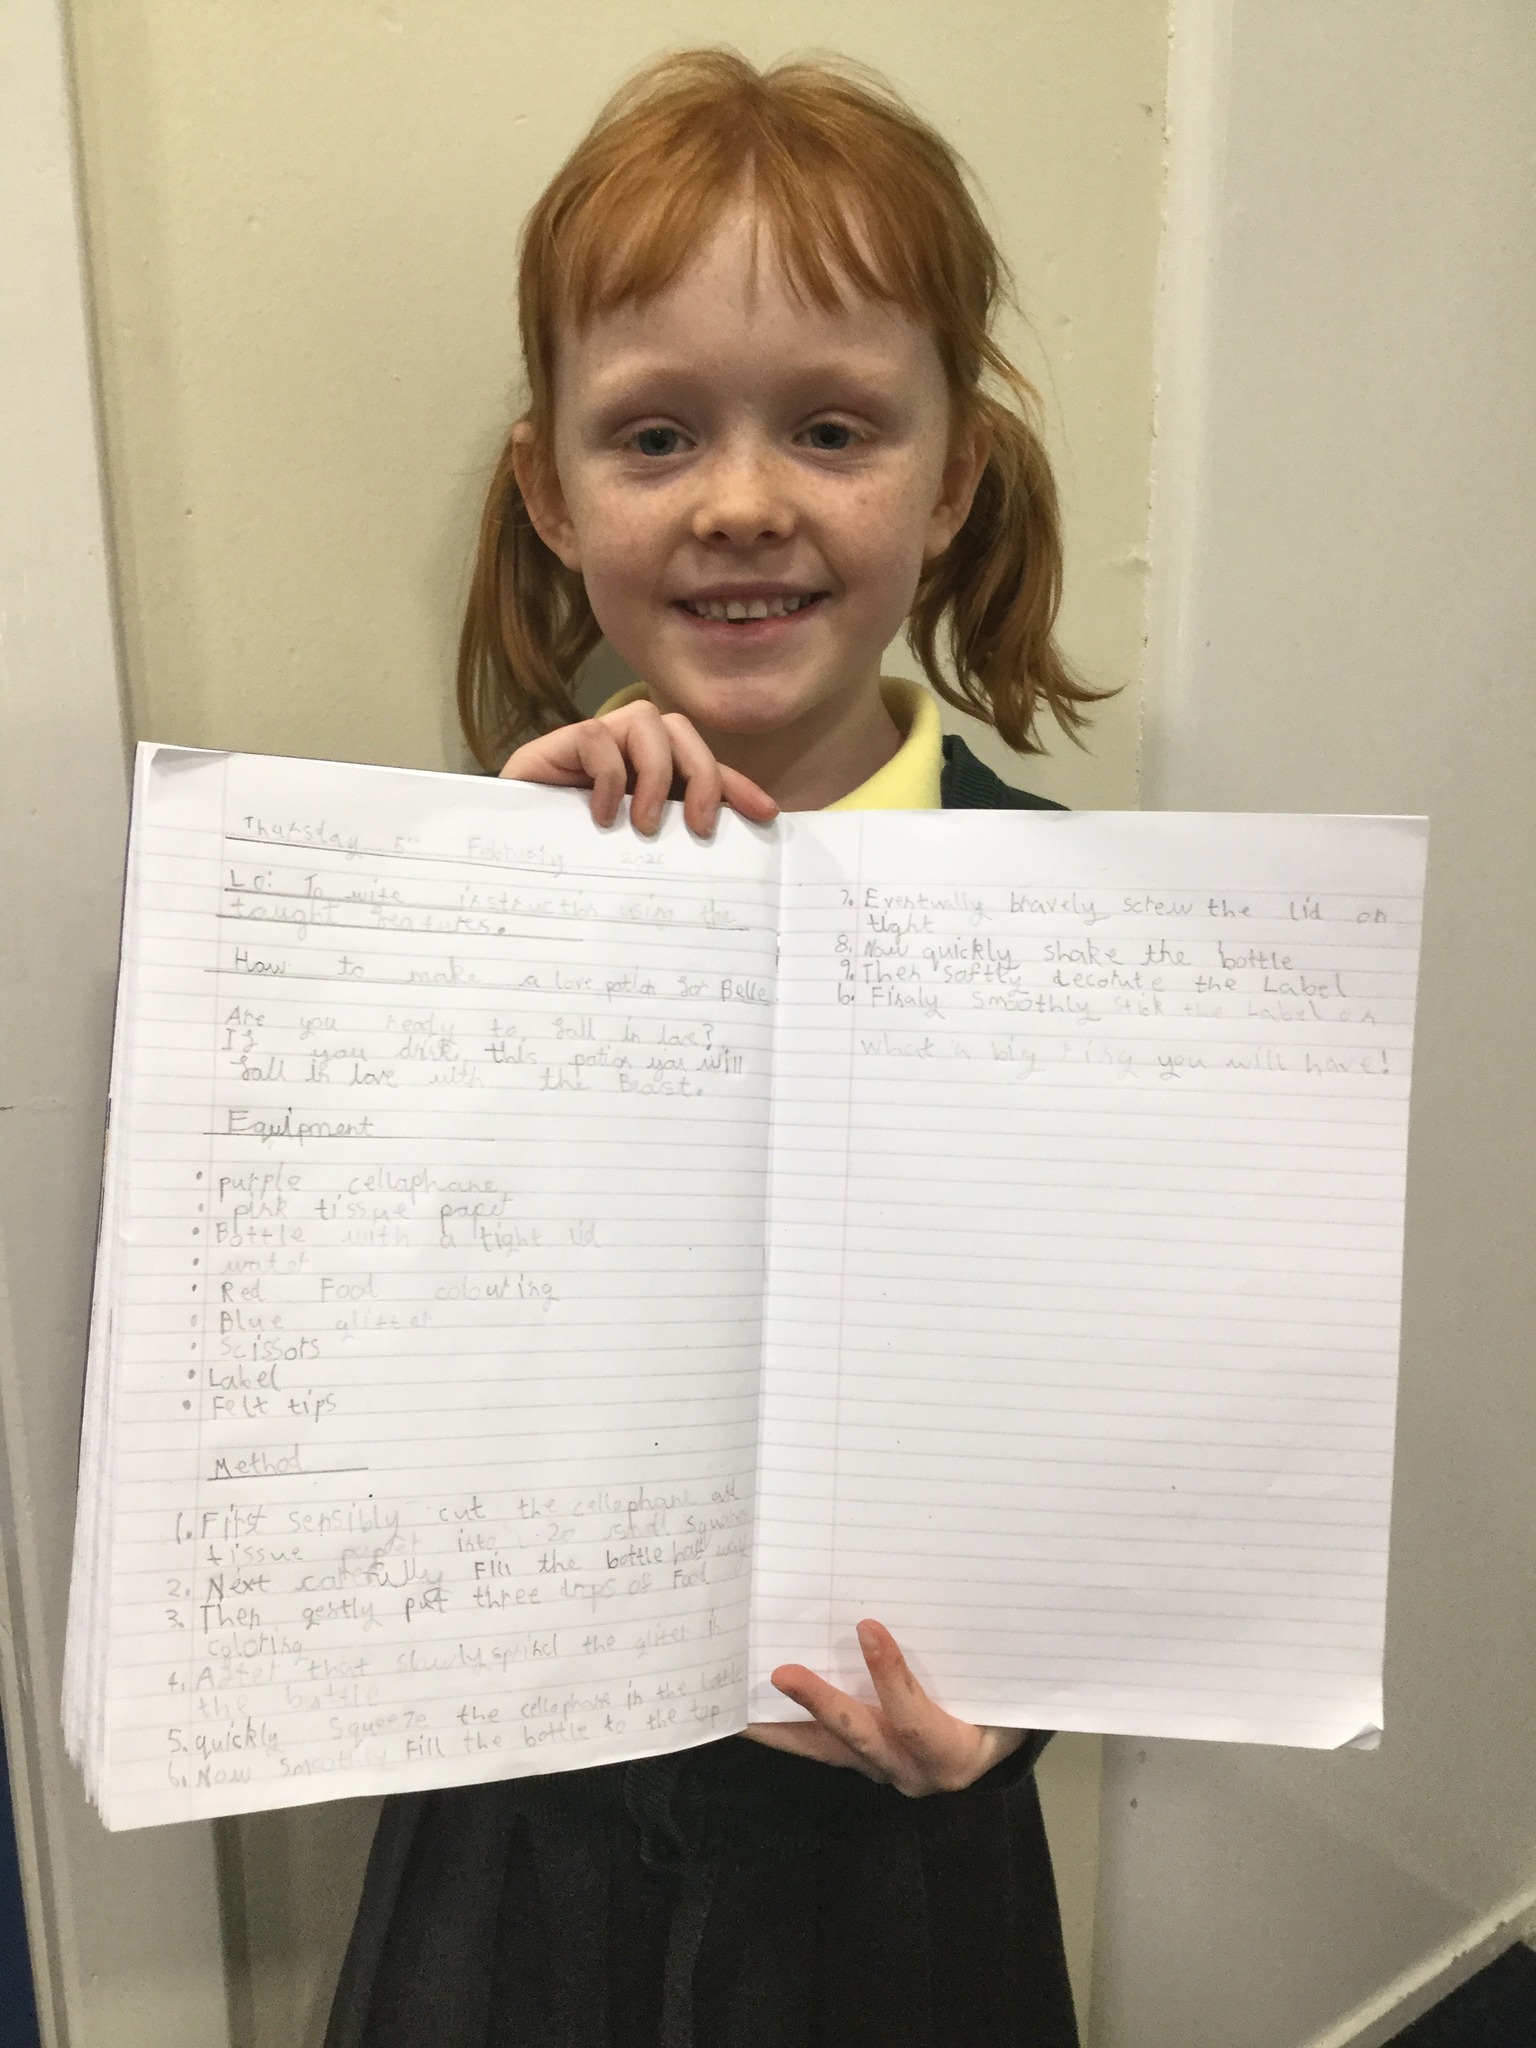 Thursday 5th February 2026
LO: To wite instruction using the
taught features.
How to make a love potion for Belle
Are you ready to fall in love?
If you drink this potion you will
fall in love with the Beast.
Equipment
• purple cellaphane
• pink tissue paper
• Bottle with a tight lid
• water
• Red Food colouring
• Blue glitter
• Scissors
• Label
• Felt tips
Method
1. First sensibly cut the cellophane and
tissue paper into 20 small squares
2. Next carefully Fill the bottle half way
3. Then gently put three drops of Food
coloring
4. After that slowly sprincl the gliter in
the bottle
5. quickly squeeze the cellophane in the bottle
6. Now smoothly Fill the bottle to the top
7. Eventually bravely screw the lid on
tight
8. Now quickly shake the bottle
9. Then softly decorate the Label
6. Finaly smoothly stick the Label on
what a big ring you will have!